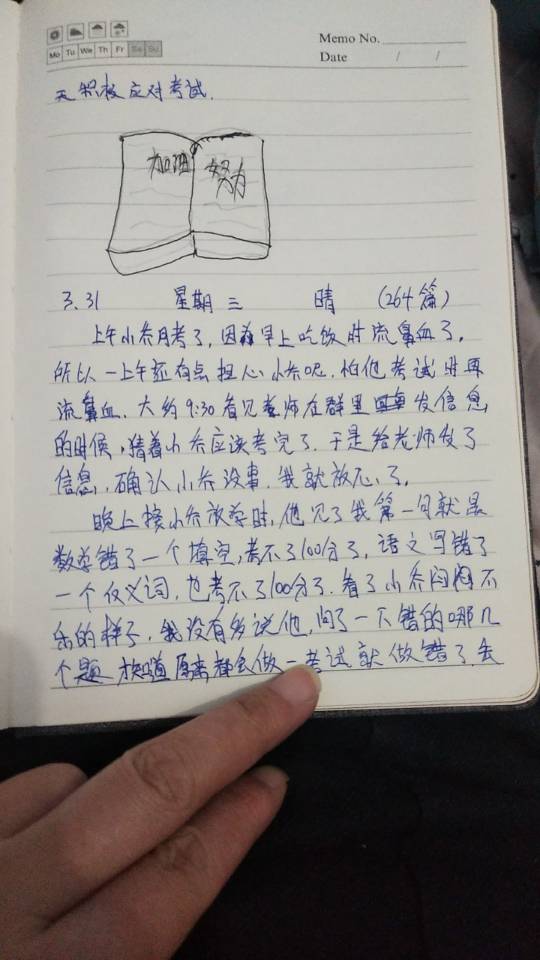 Memo No.
Mo Tu We Th Fr Sa Su
Date / /
天积极应对考试.
加油 努力
3.31 星期三 晴 (264篇)
上午小乔月考了,因为早上吃饭时流鼻血了,
所以一上午都有点担心小乔呢,怕他考试时再
流鼻血、大约9:30看见老师在群里发信息
的时候,猜着小乔应该考完了,于是给老师发了
信息,确认小乔没事,我就放心了.
晚上接小乔放学时,他见了我第一句就是
数学错了一个填空,考不了100分了,语文写错了
一个反义词,也考不了100分了.看了小乔闷闷不
乐的样子,我没有多说他,问了一下错的哪几
个题 才知道原来都会做一考试就做错了.去